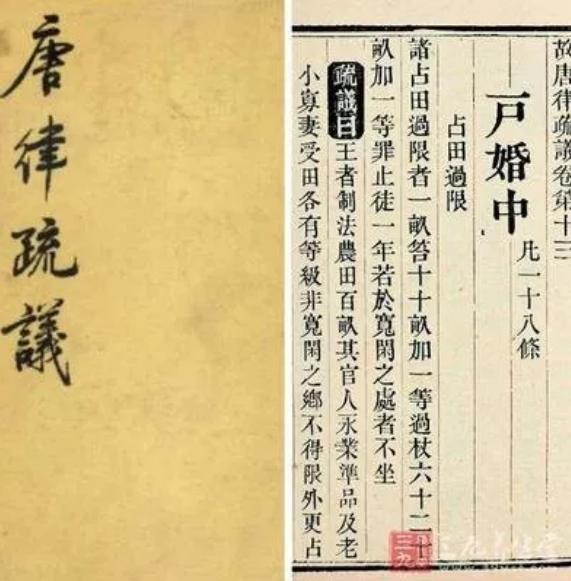 唐律疏議
故唐律疏議卷第十三
戶婚中
凡一十八條
占田過限
諸占田過限者一畝笞十十畝加一等過杖六十二十
畝加一等罪止徒一年若於寬閑之處者不坐
疏議曰王者制法農田百畝其官人永業準品及老
小寡妻受田各有等級非寬閑之鄉不得限外更占
三九养生堂